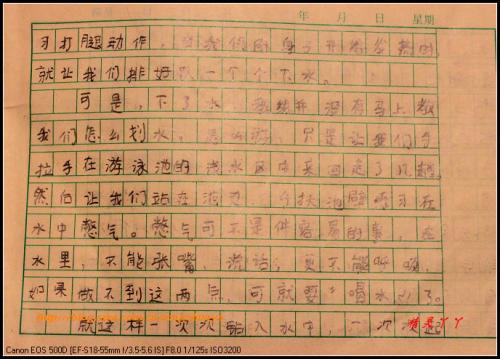 年 月 日 星期
习打腿动作,我们的身子
就让我们排好队一个个下水。
可是,下了水,教练并没有马上教
我们怎么划水,怎么游,只是让我们手
拉手在游泳池的浅水区中来回走了几趟。
然后让我们站在池边,手扶池壁学习在
水中憋气。憋气可不是件容易的事,在
水里,不能张嘴,说话,更不能呼吸,
如果做不到这两点,可就要喝水了。
就这样一次次钻入水中,一次次
Canon EOS 500D [EF-S18-55mm f/3.5-5.6 IS] F8.0 1/125s ISO3200